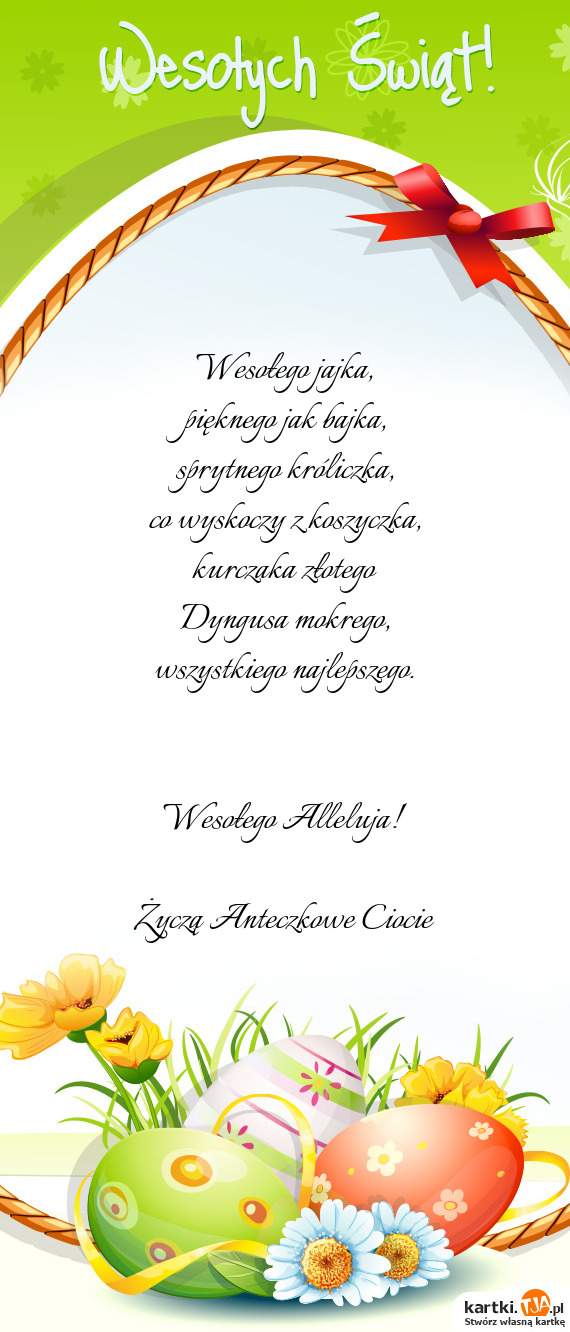 Wesołych Świąt!
Wesołego jajka,
pięknego jak bajka,
sprytnego króliczka,
co wyskoczy z koszyczka,
kurczaka złotego
Dyngusa mokrego,
wszystkiego najlepszego.
Wesołego Alleluja!
Życzą Anteczkowe Ciocie
kartki.TJA.pl
Stwórz własną kartkę